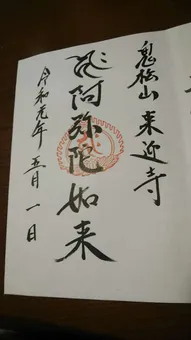 松山 来迎寺
阿弥陀如来
令和元年 五月一日